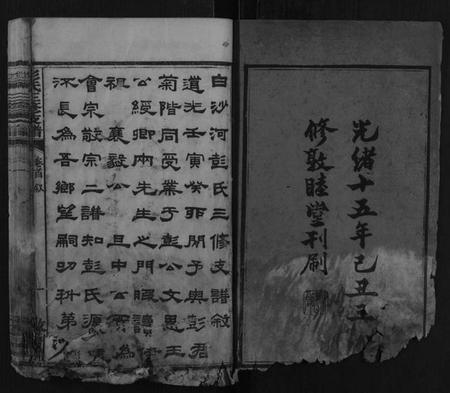 光緒十五年己丑三
修敦睦堂刊刷
白沙河彭氏三修支譜敘
道光壬寅癸卯閒予與彭君
菊階同受業于彭公文思王
公經卿兩先生之門暇讀
祖襄毅公且中公 為
會宗敬宗二譜知彭氏源
派長為吾鄉望嗣功科第
彭氏三修支譜
卷首 敘
一
敦睦堂